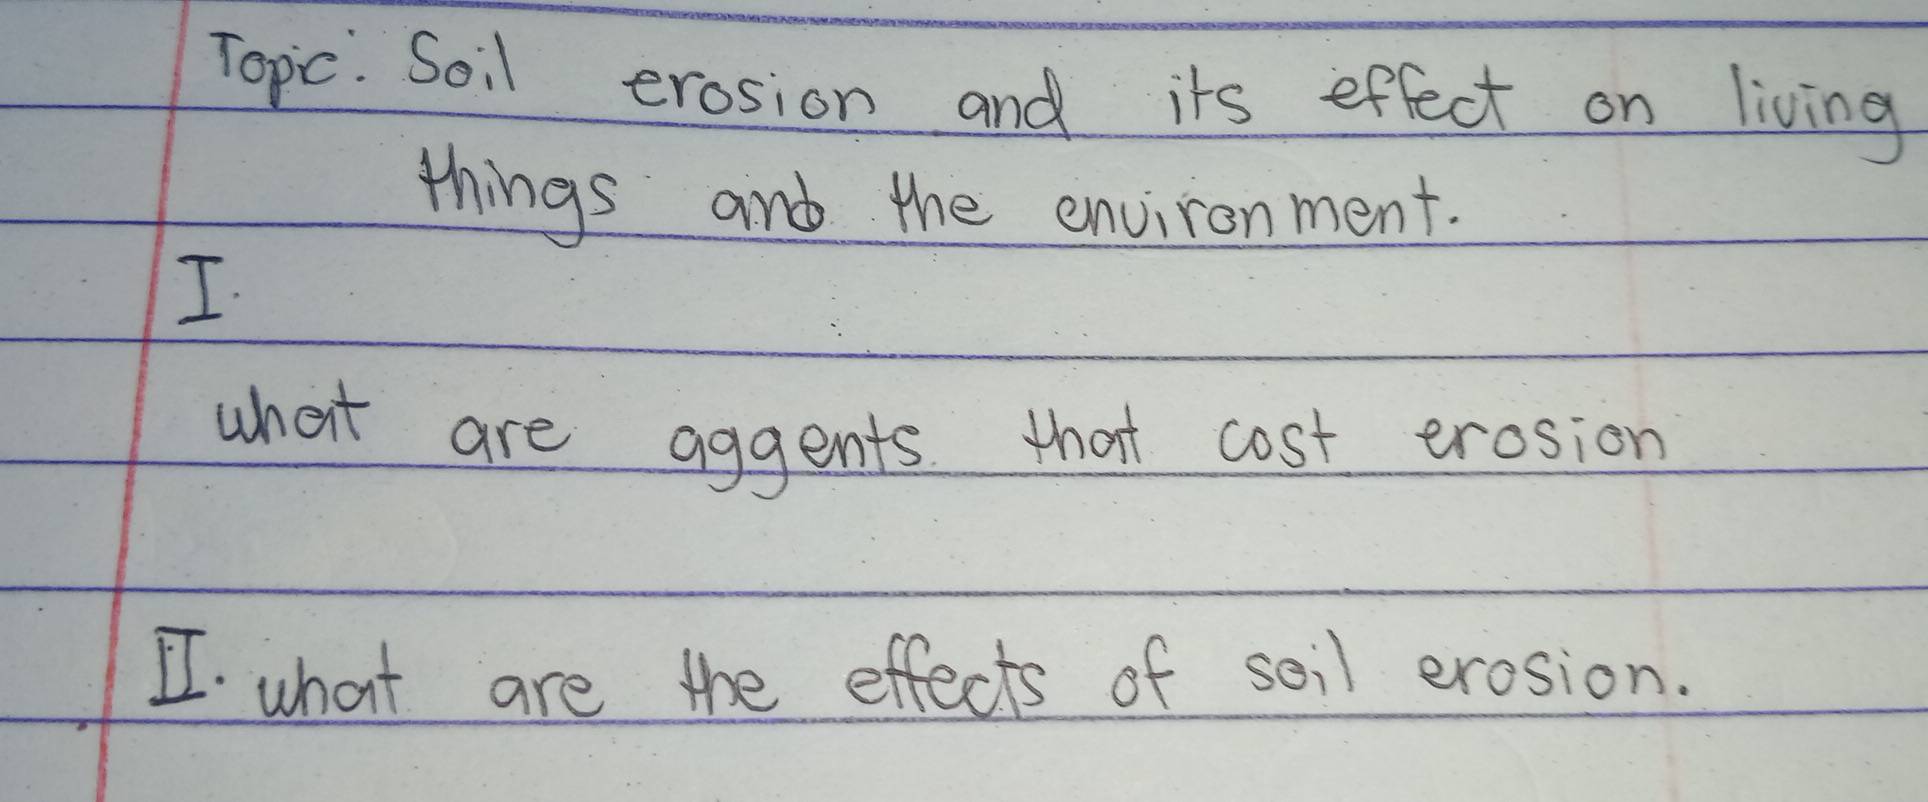 Topic: Soil erosion and its effect on living
things and the environment.
I.
what are aggents that cost erosion
II. what are the effects of soil erosion.